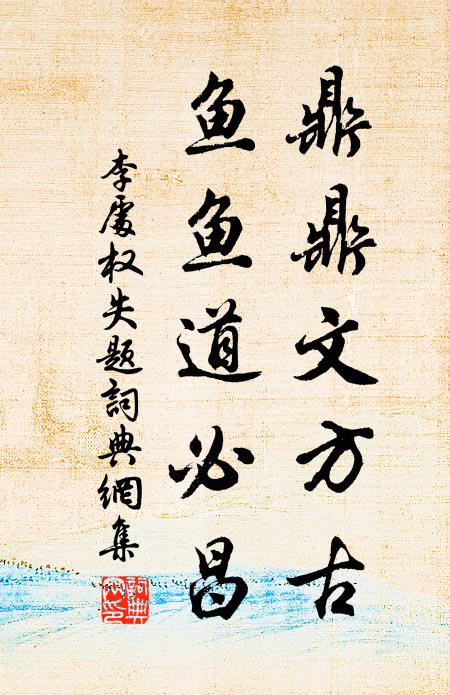 鼎鼎文方古
鱼鱼道必昌
李處权失题詞典網集